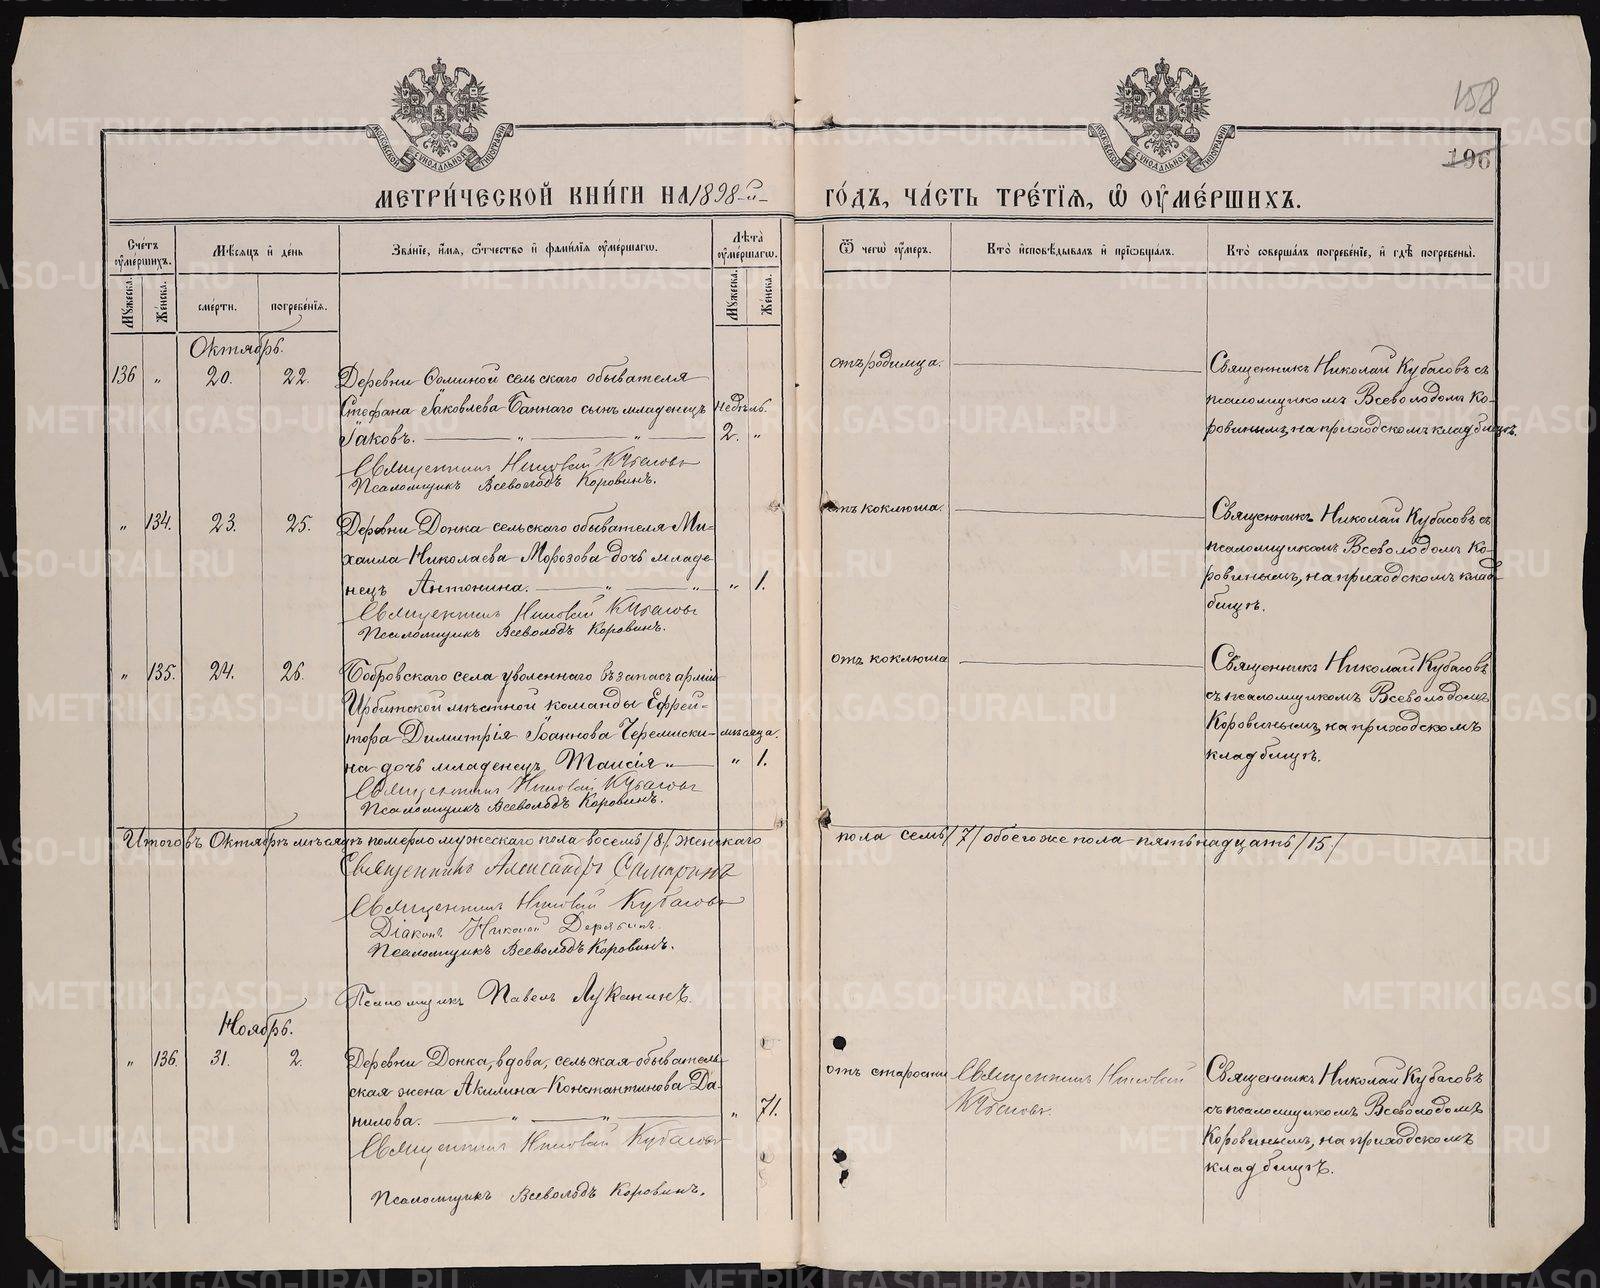 158
196
МЕТРИ́ЧЕСКОЙ КНИ́ГИ НА 1898-й
ГО́ДЪ, ЧА́СТЬ ТРЕ́ТЇѦ, Ѡ҆ ОУ҆МЕ́РШИХЪ.
Сче́тъ оу҆ме́ршихъ.
Мѣ́сѧцъ и҆ де́нь
Зва́нїе, и҆́мѧ, ѻ҆́тчество и҆ фами́лїѧ оу҆ме́ршагѡ.
Лѣ́та оу҆ме́ршагѡ.
Ѿ чегѡ̀ оу҆́меръ.
Кто̀ и҆сповѣ́дывалъ и҆ прїѡбща́лъ.
Кто̀ соверша́лъ погребе́нїе, и҆ гдѣ̀ погребены̀.
Мꙋ́жеска.
Же́нска.
сме́рти.
погребе́нїѧ.
Мꙋ́жеска.
Же́нска.
Октябрь.
136 „ 20. 22. Деревни Фоминой сельскаго обывателя
Стефана Іаковлева Баннаго сынъ младенецъ недѣль.
Іаковъ. „ „ 2. „
Священникъ Николай Кубасовъ
Псаломщикъ Всеволодъ Коровинъ.
отъ родимца.
Священникъ Николай Кубасовъ съ
псаломщикомъ Всеволодомъ Ко-
ровинымъ, на приходскомъ кладбищѣ.
„ 134. 23. 25. Деревни Донка сельскаго обывателя Ми-
хаила Николаева Морозова дочь младе-
нецъ Антонина. „ „ „ 1.
Священникъ Николай Кубасовъ
Псаломщикъ Всеволодъ Коровинъ.
отъ коклюша.
Священникъ Николай Кубасовъ съ
псаломщикомъ Всеволодомъ Ко-
ровинымъ, на приходскомъ клад-
бищѣ.
„ 135. 24. 26. Бобровскаго села уволеннаго въ запасъ арміи
Ирбитской мѣстной команды Ефрей-
тора Димитрія Іоаннова Черемиски- мѣсяца.
на дочь младенецъ Таисія „ „ 1.
Священникъ Николай Кубасовъ
Псаломщикъ Всеволодъ Коровинъ.
отъ коклюша
Священникъ Николай Кубасовъ
съ псаломщикомъ Всеволодомъ
Коровинымъ, на приходскомъ
кладбищѣ.
Итого въ Октябрѣ мѣсяцѣ померло мужескаго пола восемь /8/, женскаго
пола семь /7/ обоего же пола пятьнадцать /15/
Священникъ Александръ
Священникъ Николай Кубасовъ
Діаконъ Николай Дерябинъ.
Псаломщикъ Всеволодъ Коровинъ.
Псаломщикъ Павелъ Луканинъ.
Ноябрь.
„ 136. 31. 2. Деревни Донка, вдова, сельская обыватель-
ская жена Акилина Константинова Да-
нилова. „ „ „ 71.
Священникъ Николай Кубасовъ
Псаломщикъ Всеволодъ Коровинъ.
отъ старости
Священникъ Николай
Кубасовъ.
Священникъ Николай Кубасовъ
съ псаломщикомъ Всеволодомъ
Коровинымъ, на приходскомъ
кладбищѣ.
METRIKI.GASO-URAL.RU